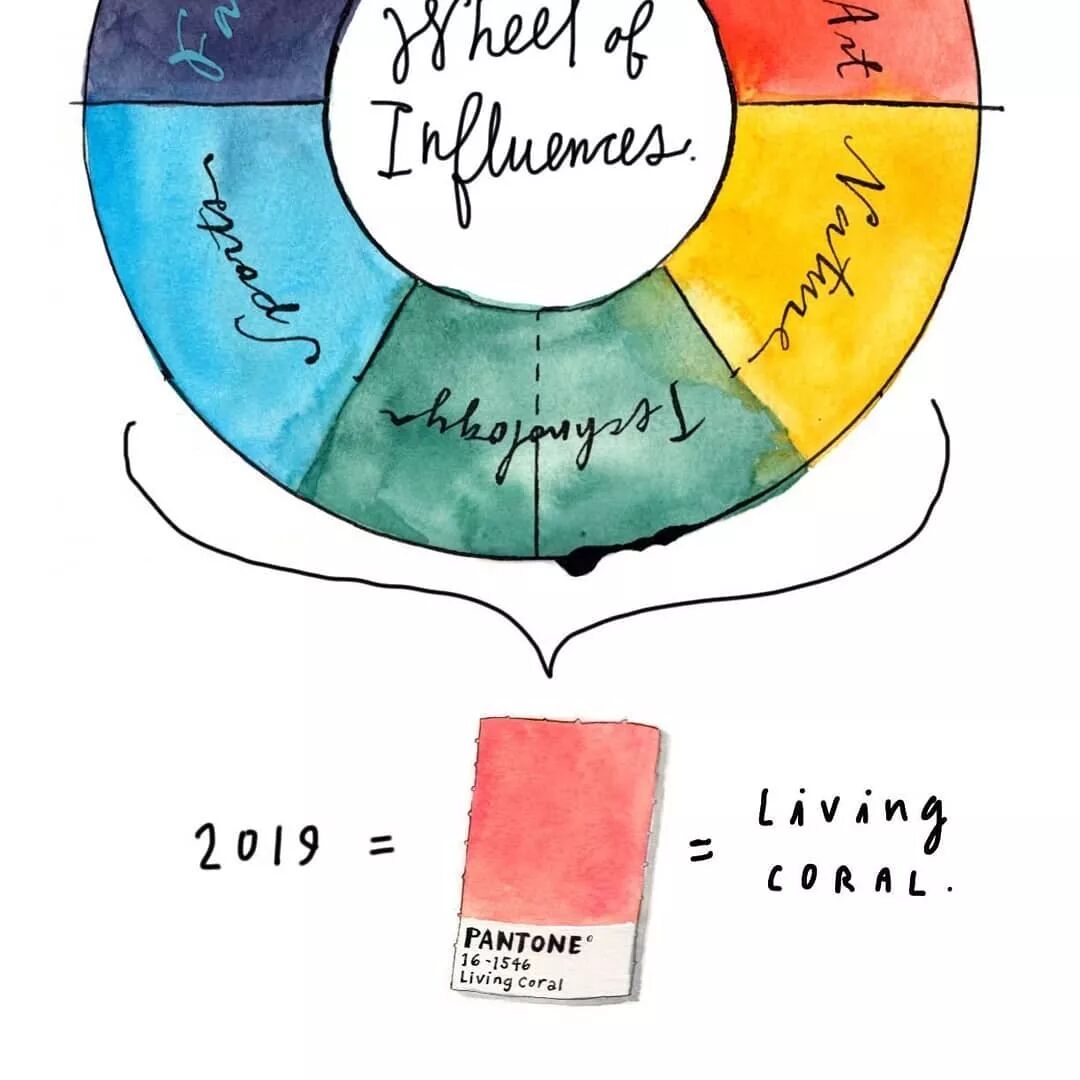 Wheel of
Influences.
Art
Nature
Technology
Sports
Fa
2019 = = Living
CORAL.
PANTONE®
16-1546
Living Coral